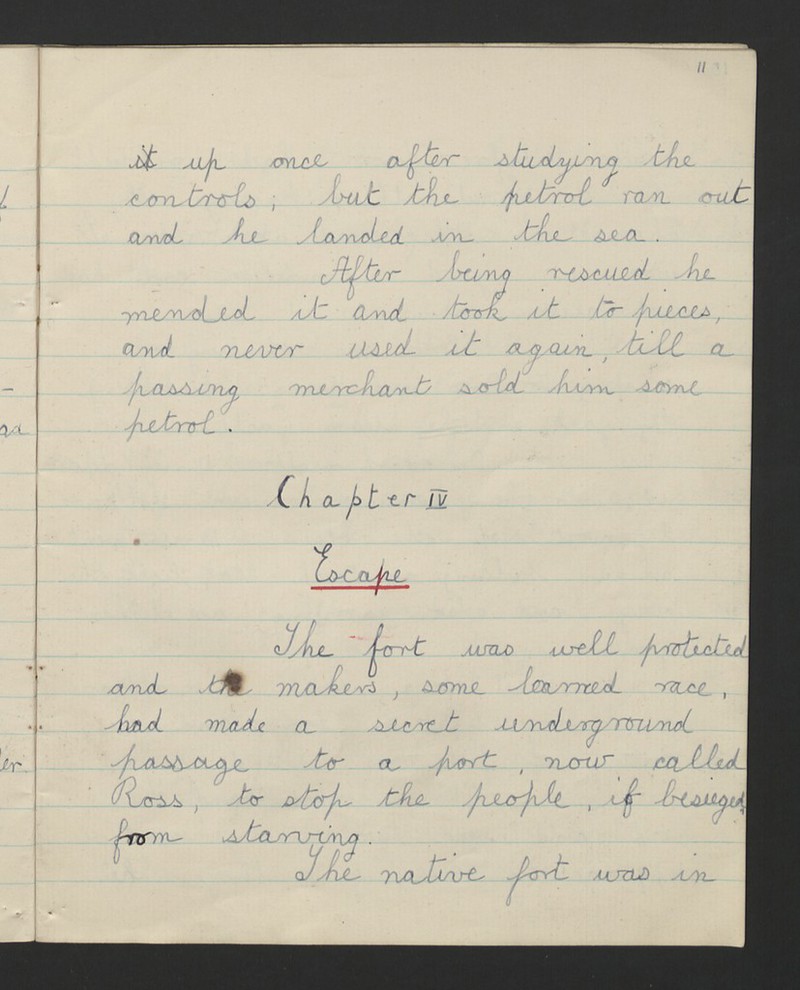 11
it up once after studying the
controls; but the petrol ran out
and he landed in the sea.
After being rescued he
mended it and took it to pieces,
and never used it again, till a
passing merchant sold him some
petrol.
Chapter IV
Escape
The fort was well protected
and the makers, some learned race,
had made a secret underground
passage to a port, now called
Ross, to stop the people, if besieged,
from starving.
The native fort was in